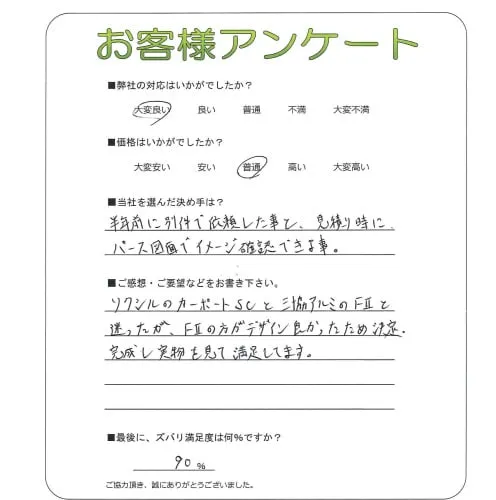 お客様アンケート
■弊社の対応はいかがでしたか?
大変良い 良い 普通 不満 大変不満
■価格はいかがでしたか?
大変安い 安い 普通 高い 大変高い
■当社を選んだ決め手は?
半年前に別件で依頼した事と、見積り時に
パース図面でイメージ確認できる事。
■ご感想・ご要望などをお書き下さい。
リクシルのカーポートSCと三協アルミのFⅡと
迷ったが、FⅡの方がデザイン良かったため決定。
完成し実物を見て満足してます。
■最後に、ズバリ満足度は何%ですか?
90 %
ご協力頂き、誠にありがとうございました。